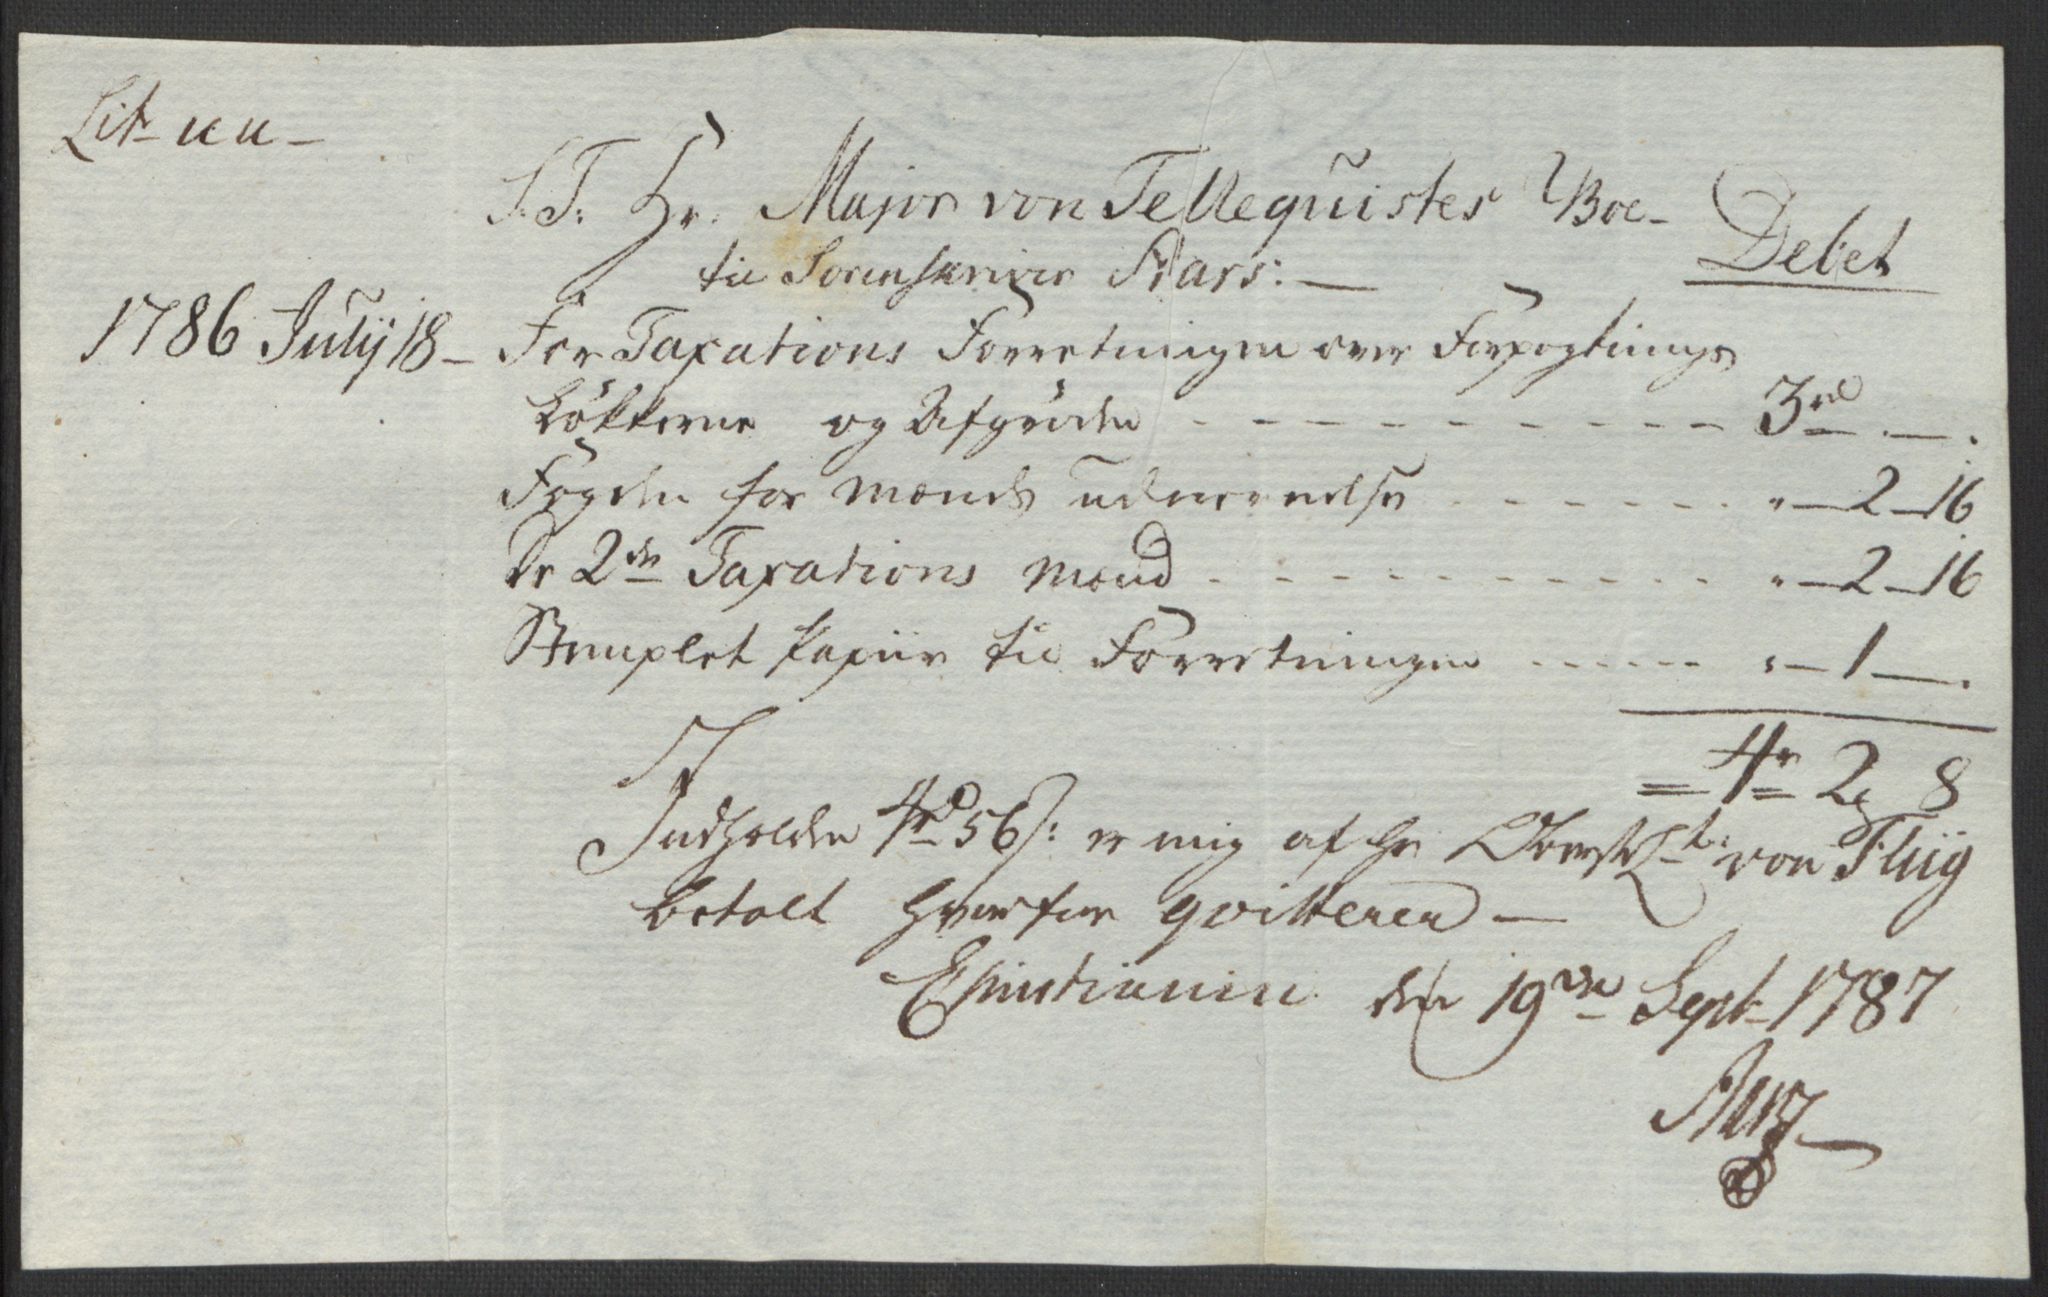 Lit- uu -
S: T: Hr. Major von Tellequistes Boe -
Debet
til Sorenskriver Aars: —
1786 Julÿ 18 - For Taxations Forretningen over Forpagtnings
Løkkerne og Afgrøden - - - - - - - - - - - 3 rd — .
Fogden for Mænds udnævnelse - - - - - - " — 2 — 16
De 2de Taxations Mænd - - - - - - - - - - " — 2 — 16
Stemplet Papiir til Forretningen - - - - - - " — 1 — .
= 4 r 2 8
Indholden 4 rd 56 s: er mig af Hr Oberst Lt: von Flüg
betalt hvorfor qvitterer —
Christiania den 19de Sept- 1787
Aars